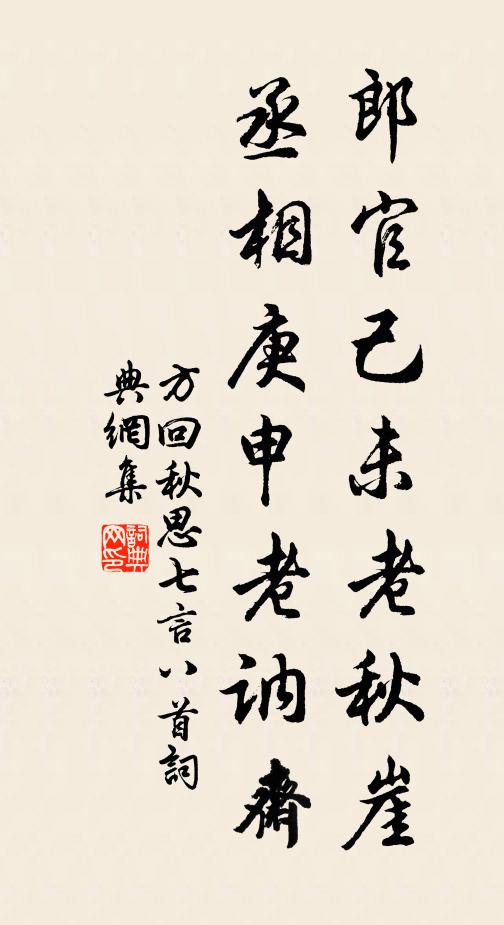 郎官己未老秋崖
丞相庚申老訥齋
方回秋思七言八首詞
典網集
詞典網印